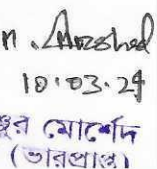 M. Morshed
10.03.24
ুর মোর্শেদ
(ভারপ্রাপ্ত)